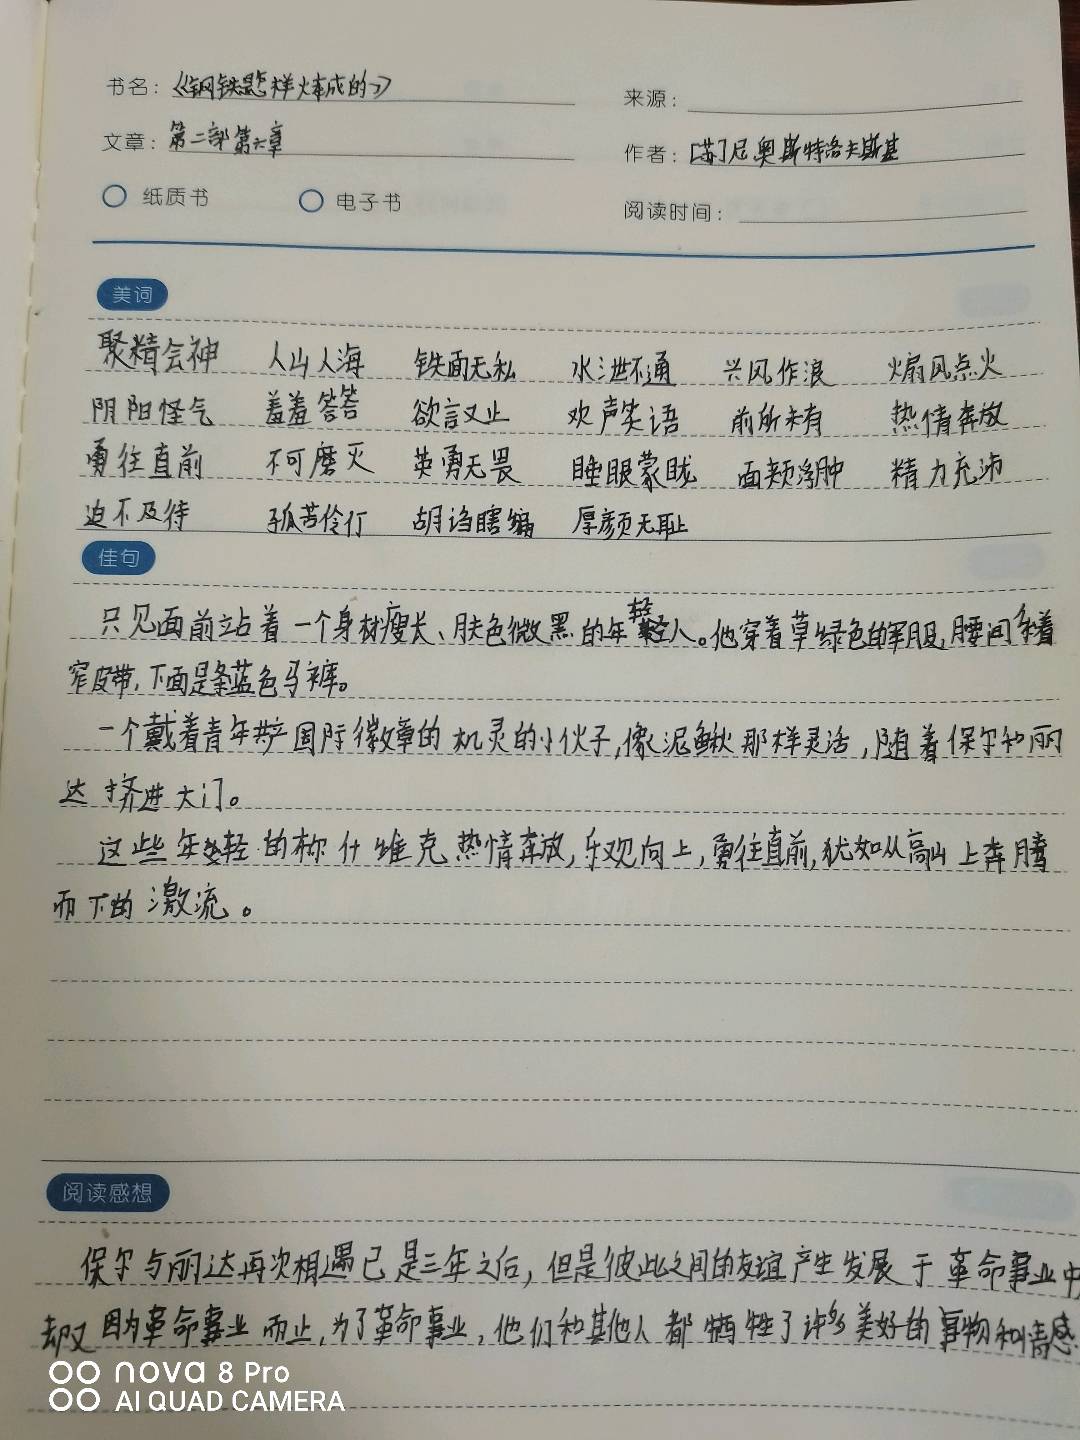 书名：《钢铁是怎样炼成的》
来源：
文章：第二部第六章
作者：[苏]尼奥斯特洛夫斯基
纸质书 电子书
阅读时间：
美词
聚精会神 人山人海 铁面无私 水泄不通 兴风作浪 煽风点火
阴阳怪气 羞羞答答 欲言又止 欢声笑语 前所未有 热情奔放
勇往直前 不可磨灭 英勇无畏 睡眼蒙眬 面颊浮肿 精力充沛
迫不及待 孤苦伶仃 胡诌瞎编 厚颜无耻
佳句
只见面前站着一个身材瘦长、肤色微黑的年轻人。他穿着草绿色的军服，腰间系着
窄皮带，下面是条蓝色马裤。
一个戴着青年共产国际徽章的机灵的小伙子，像泥鳅那样灵活，随着保尔和丽
达挤进大门。
这些年轻的布尔什维克热情奔放，乐观向上，勇往直前，犹如从高山上奔腾
而下的激流。
阅读感想
保尔与丽达再次相遇已是三年之后，但是彼此之间的友谊产生发展于革命事业中
却又因为革命事业而止，为了革命事业，他们和其他人都牺牲了许多美好的事物和情感
nova 8 Pro
AI QUAD CAMERA